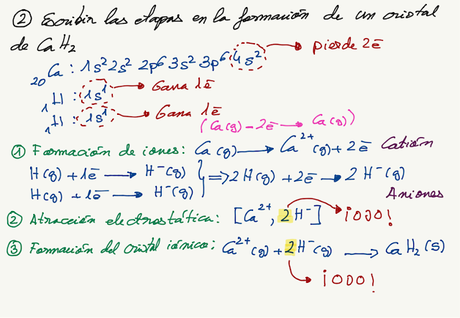 ② Escribir las etapas en la formación de un cristal
de CaH₂
₂₀Ca: 1s² 2s² 2p⁶ 3s² 3p⁶ 4s² → pierde 2ē
₁H: 1s¹ → Gana 1ē
₁H: 1s¹ → Gana 1ē
(Ca(g) - 2ē → Ca(g))
① Formación de iones: Ca(g) → Ca²⁺(g) + 2ē Catión
H(g) + 1ē → H⁻(g)
H(g) + 1ē → H⁻(g) } ⇒ 2H(g) + 2ē → 2H⁻(g)
Aniones
② Atracción electrostática: [Ca²⁺, 2H⁻] → ¡OJO!
③ Formación del cristal iónico: Ca²⁺(g) + 2H⁻(g) → CaH₂(s)
¡OJO!